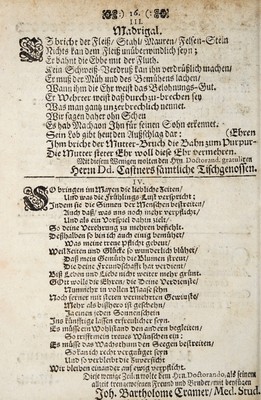 16.
III.
Madrigal.
Es bricht der Fleiß / Stahl / Mauren / Felsen-Stein
Nichts kan dem Fleiß unüberwindlich seyn;
Er bahnt die Ebbe mit der Fluth.
Kein Schweiß / Verdruß kan ihn verdrüßlich machen /
Er muß der Müh und des Bemühens lachen /
Wann ihm die Ehr weist das Belohnungs-Gut.
Er Wehrter weist daß durch zu brechen sey
Was man ganz unzerbrechlich nennet.
Wir sagen daher ohn Scheu
Es hab Machaon Ihn für seinen Sohn erkennet.
Sein Lob gibt heut den Ausschlag dar: (Ehren
Ihm brichet der Mutter-Bruch die Bahn zum Purpur-
Die Mutter steter Ehr woll diese Ehr vermehren.
Mit diesem Wenigen wolten den Hrn. Doctorand. gratuliren
Herrn D.d. Castners sämtliche Tischgenossen.
IV.
So bringen im Mayen die liebliche Zeiten /
Und was die Frühlings-Lust verspricht;
Indem sie die Sinnen der Menschen bestreiten /
Auch daß / was uns noch mehr verpflicht /
Und als ein Vorspiel dahin zielt /
So deine Verehrung zu mehren befiehlt.
Deßhalben so bin ich auch einig bemühet /
Was meine treue Pflicht gebeut /
Weil Zeiten und Glücke so wunderlich blühet /
Daß mein Gemüth die Blumen streut /
Die deine Freundschafft hat verdient /
Biß Leben und Liebe nicht weiter mehr grünt.
GOtt wolle die Ehren / die Deine Verdienste /
Nunmehr in vollen Maase sehn
Nach ferner mit steten vermehrten Gewinste /
Mehr als bißhero ist geschehn /
Ja einen jeden Sonnenschein
Ins künfftige lassen erfreulicher seyn.
Es müssen Wohlstand den andern begleiten /
So trifft mein treues Wünschen ein;
Es müsse das Wachsthum den Seegen bestreiten /
So kan ich recht vergnüget seyn
Und so verbleibt die Zuversicht
Wir bleiben einander auf ewig verpflicht.
Diese wenige Zeilen wolte dem Hrn. Doctorando, als seinem
allzeit treu gewesenen Freund und Bruder / mit beyfügen
Joh. Bartholome Cramer / Med. Stud.